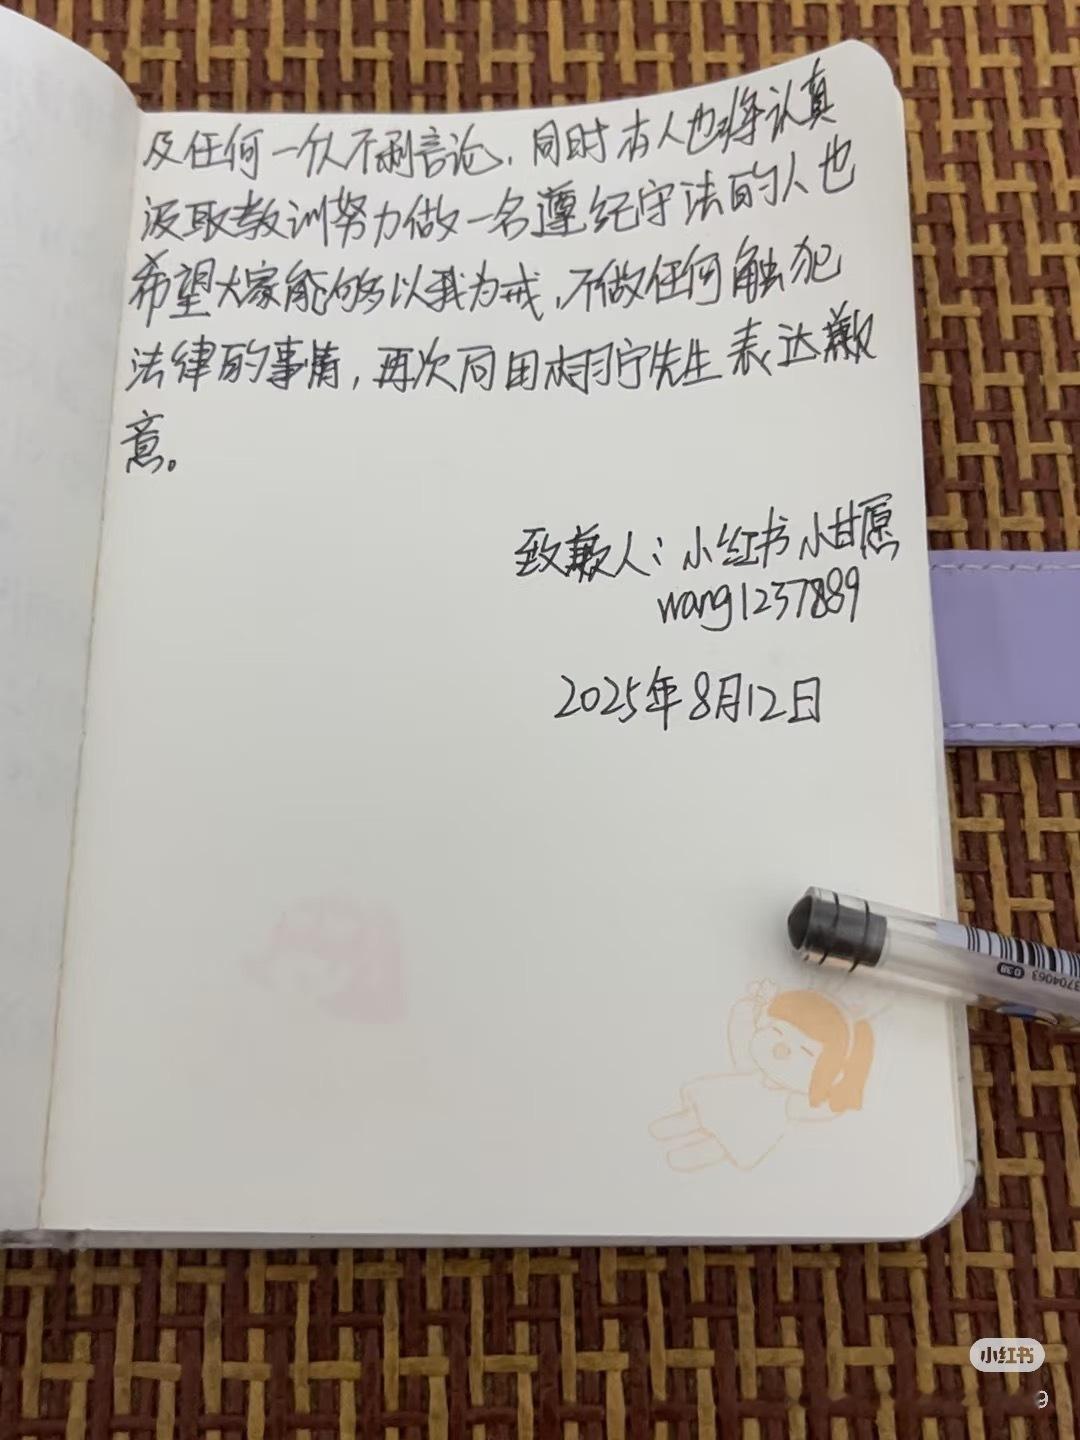 及任何一从不利言论，同时本人也将认真
汲取教训努力做一名遵纪守法的人也
希望大家能够以我为戒，不做任何触犯
法律的事情，再次向田栩宁先生表达歉
意。
致歉人：小红书 小甘愿
wang1237889
2025年8月12日
0.38
3704063
小红书
9